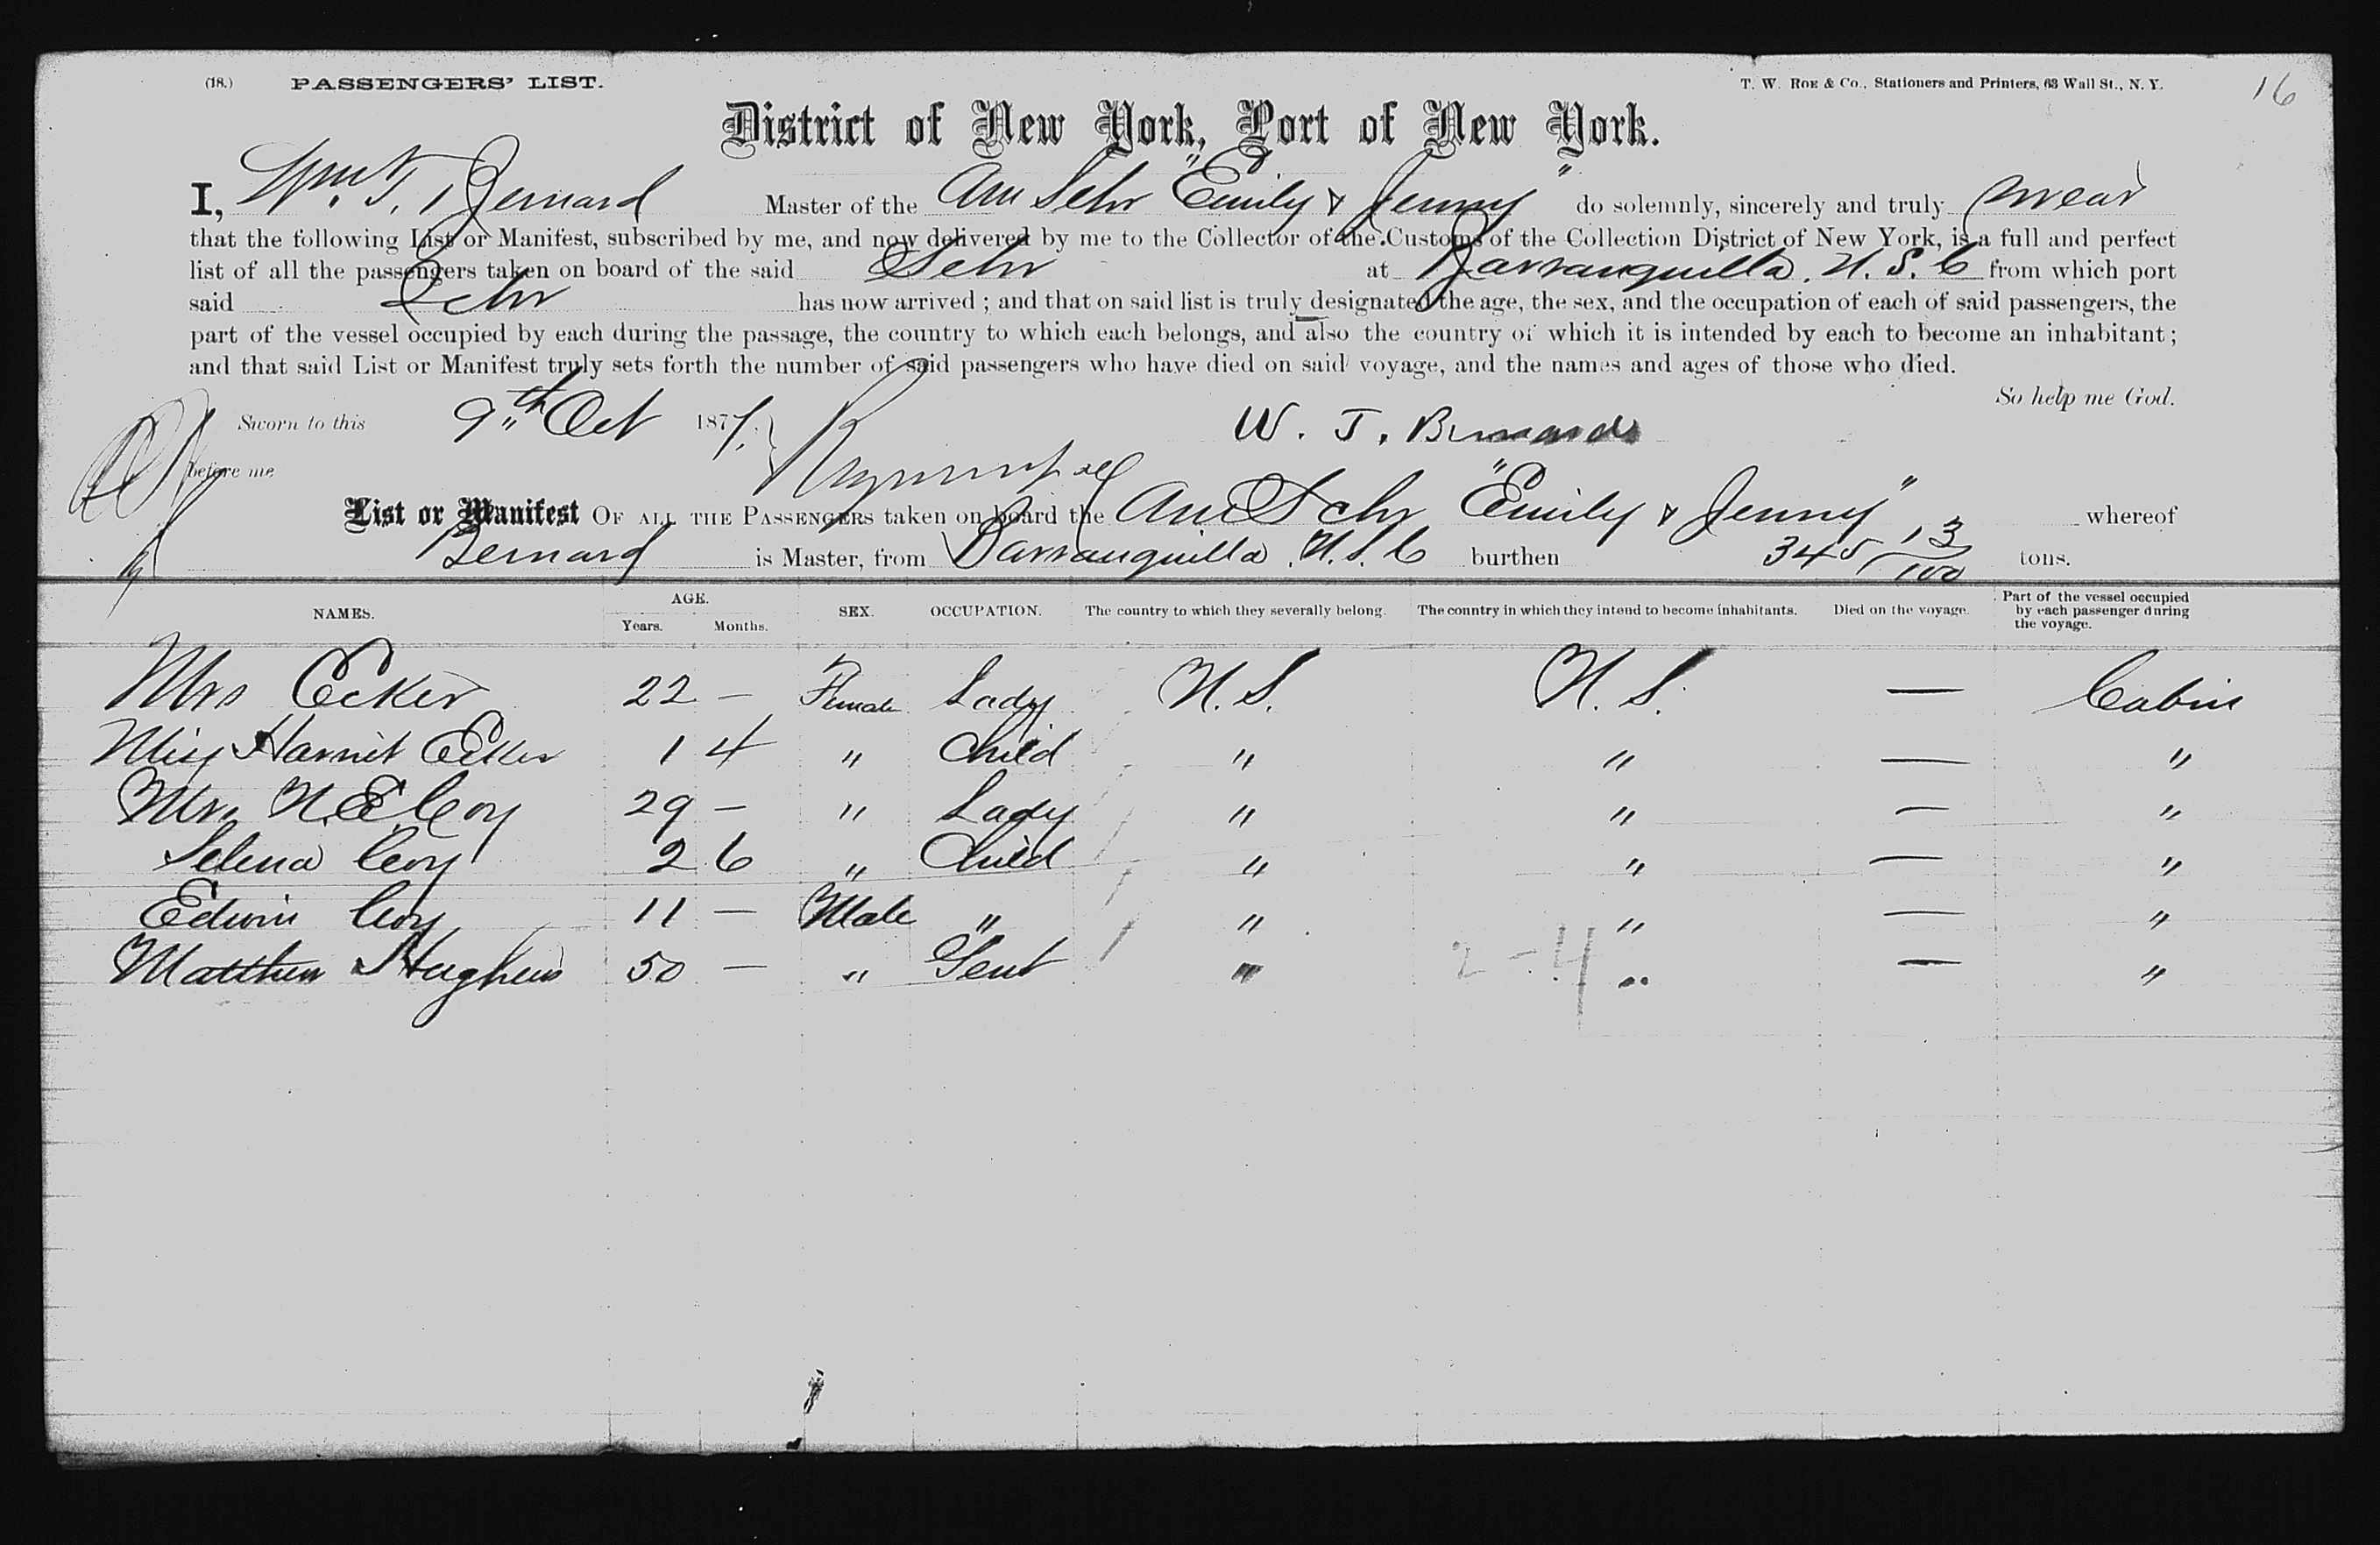 (18.) PASSENGERS' LIST. T. W. ROE & Co., Stationers and Printers, 63 Wall St., N. Y. 16
District of New York, Port of New York.
I, Wm. T. Bernard Master of the Am Schr "Emily & Jenny" do solemnly, sincerely and truly swear
that the following List or Manifest, subscribed by me, and now delivered by me to the Collector of the Customs of the Collection District of New York, is a full and perfect
list of all the passengers taken on board of the said Schr at Barranquilla, U. S. C from which port
said Schr has now arrived ; and that on said list is truly designated the age, the sex, and the occupation of each of said passengers, the
part of the vessel occupied by each during the passage, the country to which each belongs, and also the country of which it is intended by each to become an inhabitant ;
and that said List or Manifest truly sets forth the number of said passengers who have died on said voyage, and the names and ages of those who died.
So help me God.
Sworn to this 9th Oct 1877. W. T. Bernard
before me
List or Manifest OF ALL THE PASSENGERS taken on board the Am Schr "Emily & Jenny" whereof
Bernard is Master, from Barranquilla, U. S. C burthen 345 13/100 tons.
NAMES. AGE. Years. Months. SEX. OCCUPATION. The country to which they severally belong. The country in which they intend to become inhabitants. Died on the voyage. Part of the vessel occupied by each passenger during the voyage.
Mrs Ecker 22 — Female Lady U. S. U. S. — Cabin
Miss Harriet Ecker 1 4 " Child " " — "
Mrs. N. E. Coy 29 — " Lady " " — "
Selena Coy 2 6 " Child " " — "
Edwin Coy 11 — Male " " " — "
Matthew Hughes 50 — " Gent " 2 - 4 " — "